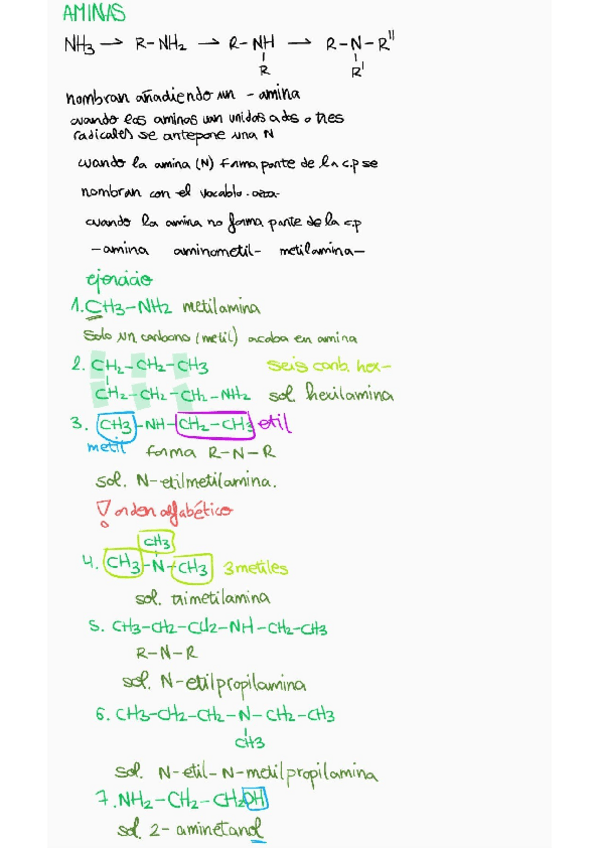 AMINAS
NH3 → R-NH2 → R-NH → R-N-R''
R R'
nombran añadiendo un -amina
cuando las aminas van unidas a dos o tres
radicales se antepone una N
cuando la amina (N) forma parte de la c.p se
nombran con el vocablo -aza-
cuando la amina no forma parte de la c.p
-amina aminometil- metilamina-
ejercicio
1. CH3-NH2 metilamina
Solo un carbono (metil) acaba en amina
2. CH2-CH2-CH3 seis carb. hex-
CH2-CH2-CH2-NH2 sol. hexilamina
3. CH3-NH-CH2-CH3 etil
metil forma R-N-R
sol. N-etilmetilamina.
! orden alfabético
CH3
4. CH3-N-CH3 3 metiles
sol. trimetilamina
5. CH3-CH2-CH2-NH-CH2-CH3
R-N-R
sol. N-etilpropilamina
6. CH3-CH2-CH2-N-CH2-CH3
CH3
sol. N-etil-N-metilpropilamina
7. NH2-CH2-CH2OH
sol. 2-aminetanol